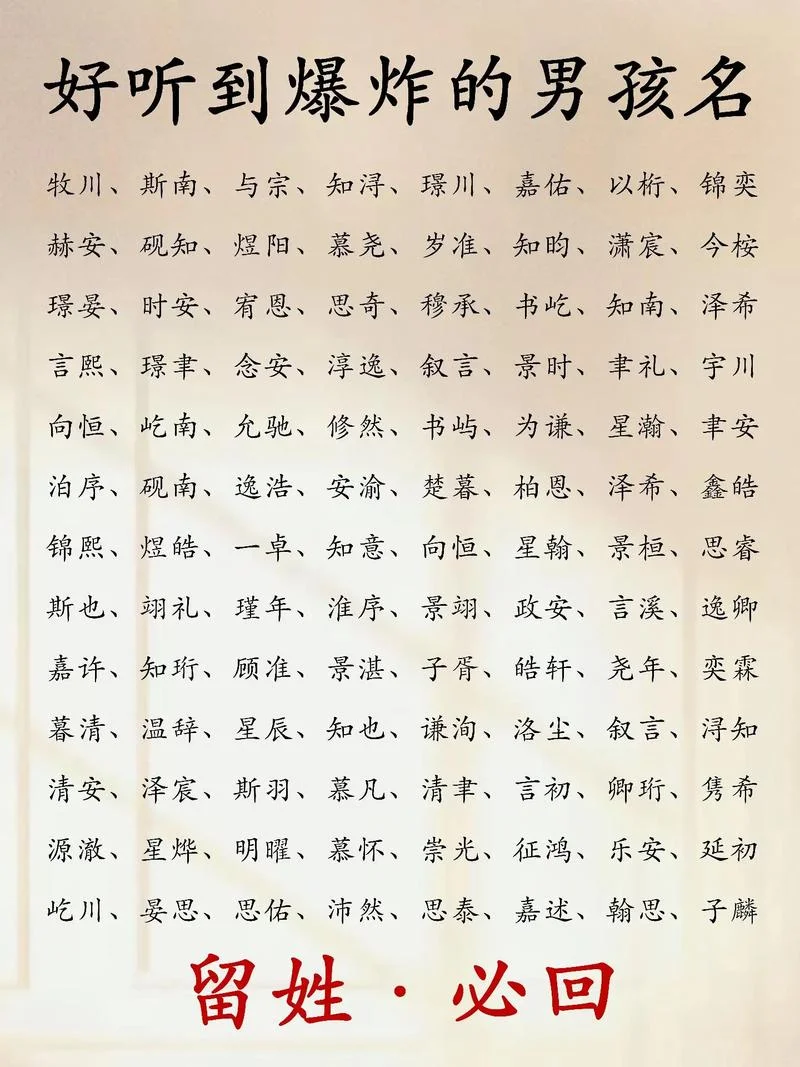 好听到爆炸的男孩名
牧川、斯南、与宗、知浔、璟川、嘉佑、以桁、锦奕
赫安、砚知、煜阳、慕尧、岁准、知昀、潇宸、今桉
璟晏、时安、宥恩、思奇、穆承、书屹、知南、泽希
言熙、璟聿、念安、淳逸、叙言、景时、聿礼、宇川
向恒、屹南、允驰、修然、书屿、为谦、星瀚、聿安
泊序、砚南、逸浩、安渝、楚暮、柏恩、泽希、鑫皓
锦熙、煜皓、一卓、知意、向恒、星翰、景桓、思睿
斯也、翊礼、瑾年、淮序、景翊、政安、言溪、逸卿
嘉许、知珩、顾准、景湛、子胥、皓轩、尧年、奕霖
暮清、温辞、星辰、知也、谦洵、洛尘、叙言、浔知
清安、泽宸、斯羽、慕凡、清聿、言初、卿珩、隽希
源澈、星烨、明曜、慕怀、崇光、征鸿、乐安、延初
屹川、晏思、思佑、沛然、思泰、嘉述、翰思、子麟
留姓·必回